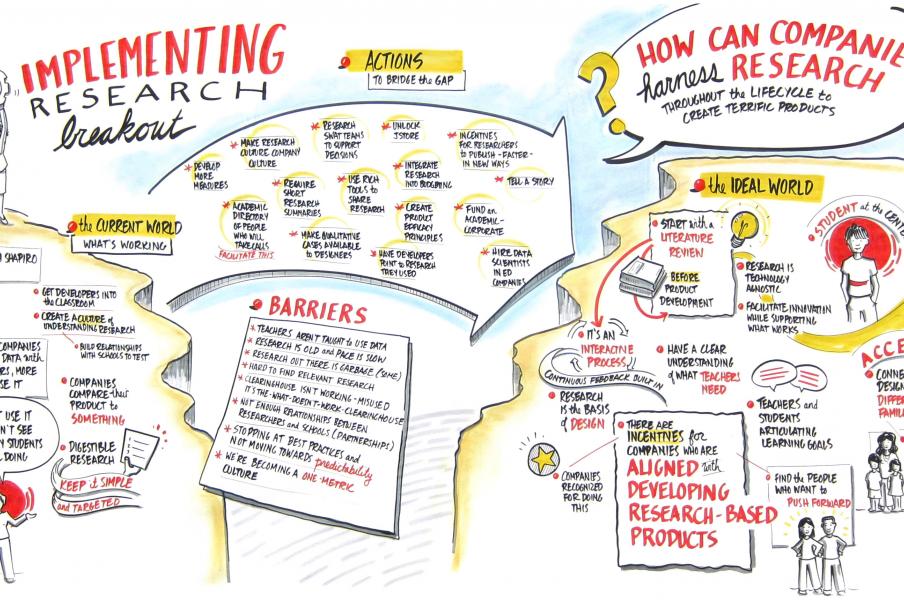 IMPLEMENTING
RESEARCH
breakout
ACTIONS
TO BRIDGE the GAP
* DEVELOP
MORE
MEASURES
* MAKE RESEARCH
CULTURE COMPANY
CULTURE
* RESEARCH
SWAT TEAMS
TO SUPPORT
DECISIONS
* UNLOCK
JSTORE
* INCENTIVES
FOR RESEARCHERS
to PUBLISH - FASTER -
IN NEW WAYS
* ACADEMIC
DIRECTORY
OF PEOPLE
WHO WILL
TAKE CALLS
FACILITATE THIS
* REQUIRE
SHORT
RESEARCH
SUMMARIES
* USE RICH
TOOLS to
SHARE
RESEARCH
* INTEGRATE
RESEARCH
INTO BUDGETING
* TELL A STORY
* MAKE QUALITATIVE
CASES AVAILABLE
to DESIGNERS
* CREATE
PRODUCT
EFFICACY
PRINCIPLES
* FUND an
ACADEMIC-
CORPORATE
* HAVE DEVELOPERS
POINT to RESEARCH
THEY USED
* HIRE DATA
SCIENTISTS
IN ED
COMPANIES
the CURRENT WORLD
WHAT'S WORKING
SHAPIRO
GET DEVELOPERS INTO
the CLASSROOM
CREATE A CULTURE of
UNDERSTANDING RESEARCH
BUILD RELATIONSHIPS
WITH SCHOOLS to TEST
COMPANIES
DATA with
MORE
USE IT
SEE
STUDENTS
DOING
COMPANIES
COMPARE their
PRODUCT to
SOMETHING
DIGESTIBLE
RESEARCH
KEEP it SIMPLE
and TARGETED
BARRIERS
* TEACHERS AREN'T TAUGHT to USE DATA
* RESEARCH IS OLD and PACE IS SLOW
* RESEARCH OUT THERE IS GARBAGE (SOME)
* HARD TO FIND RELEVANT RESEARCH
* CLEARINGHOUSE ISN'T WORKING - MISUSED
IT'S THE - WHAT - DOESN'T - WORK - CLEARINGHOUSE
* NOT ENOUGH RELATIONSHIPS BETWEEN
RESEARCHERS and SCHOOLS (PARTNERSHIPS)
* STOPPING AT BEST PRACTICES and
NOT MOVING TOWARDS predictability
* WE'RE BECOMING A ONE-METRIC
CULTURE
?
HOW CAN COMPANIE
harness RESEARCH
THROUGHOUT the LIFECYCLE to
CREATE TERRIFIC PRODUCTS
the IDEAL WORLD
START with a
LITERATURE
REVIEW
BEFORE
PRODUCT
DEVELOPMENT
STUDENT at the CENTE
RESEARCH IS
TECHNOLOGY
AGNOSTIC
FACILITATE INNOVATION
WHILE SUPPORTING
WHAT WORKS
IT'S AN
INTERACTIVE
PROCESS
CONTINUOUS FEEDBACK BUILT in
RESEARCH
IS the BASIS
of DESIGN
HAVE A CLEAR
UNDERSTANDING
of WHAT TEACHERS
NEED
TEACHERS and
STUDENTS
ARTICULATING
LEARNING GOALS
ACCE
CONNE
DESIGN
DIFFER
FAMILI
COMPANIES
RECOGNIZED
FOR DOING
THIS
THERE ARE
INCENTIVES for
COMPANIES WHO ARE
ALIGNED with
DEVELOPING
RESEARCH-BASED
PRODUCTS
FIND the PEOPLE
WHO WANT to
PUSH FORWARD